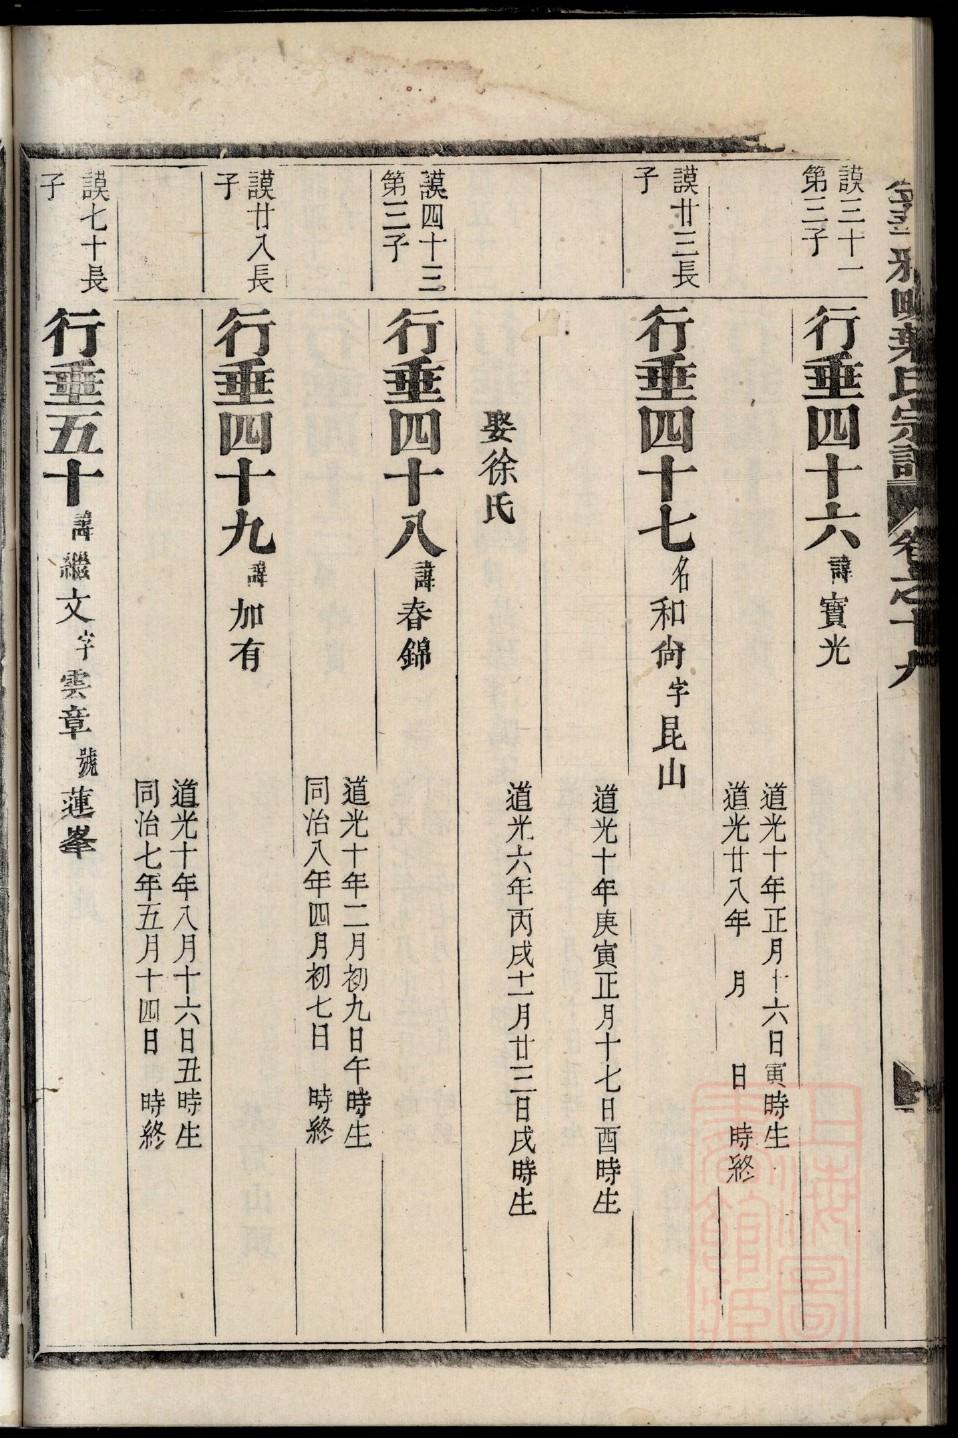 雅畈葉氏宗譜 卷之十九
謨三十一
第三子
行垂四十六 諱寶光
道光十年正月十六日寅時生
道光廿八年 月 日 時終
謨廿三長
子
行垂四十七 名和尙字昆山
道光十年庚寅正月十七日酉時生
娶徐氏
道光六年丙戌十二月廿三日戌時生
謨四十三
第三子
行垂四十八 諱春錦
道光十年二月初九日午時生
同治八年四月初七日 時終
謨廿八長
子
行垂四十九 諱加有
道光十年八月十六日丑時生
同治七年五月十四日 時終
謨七十長
子
行垂五十 諱繼文字雲章號蓮峯
上海圖書館藏